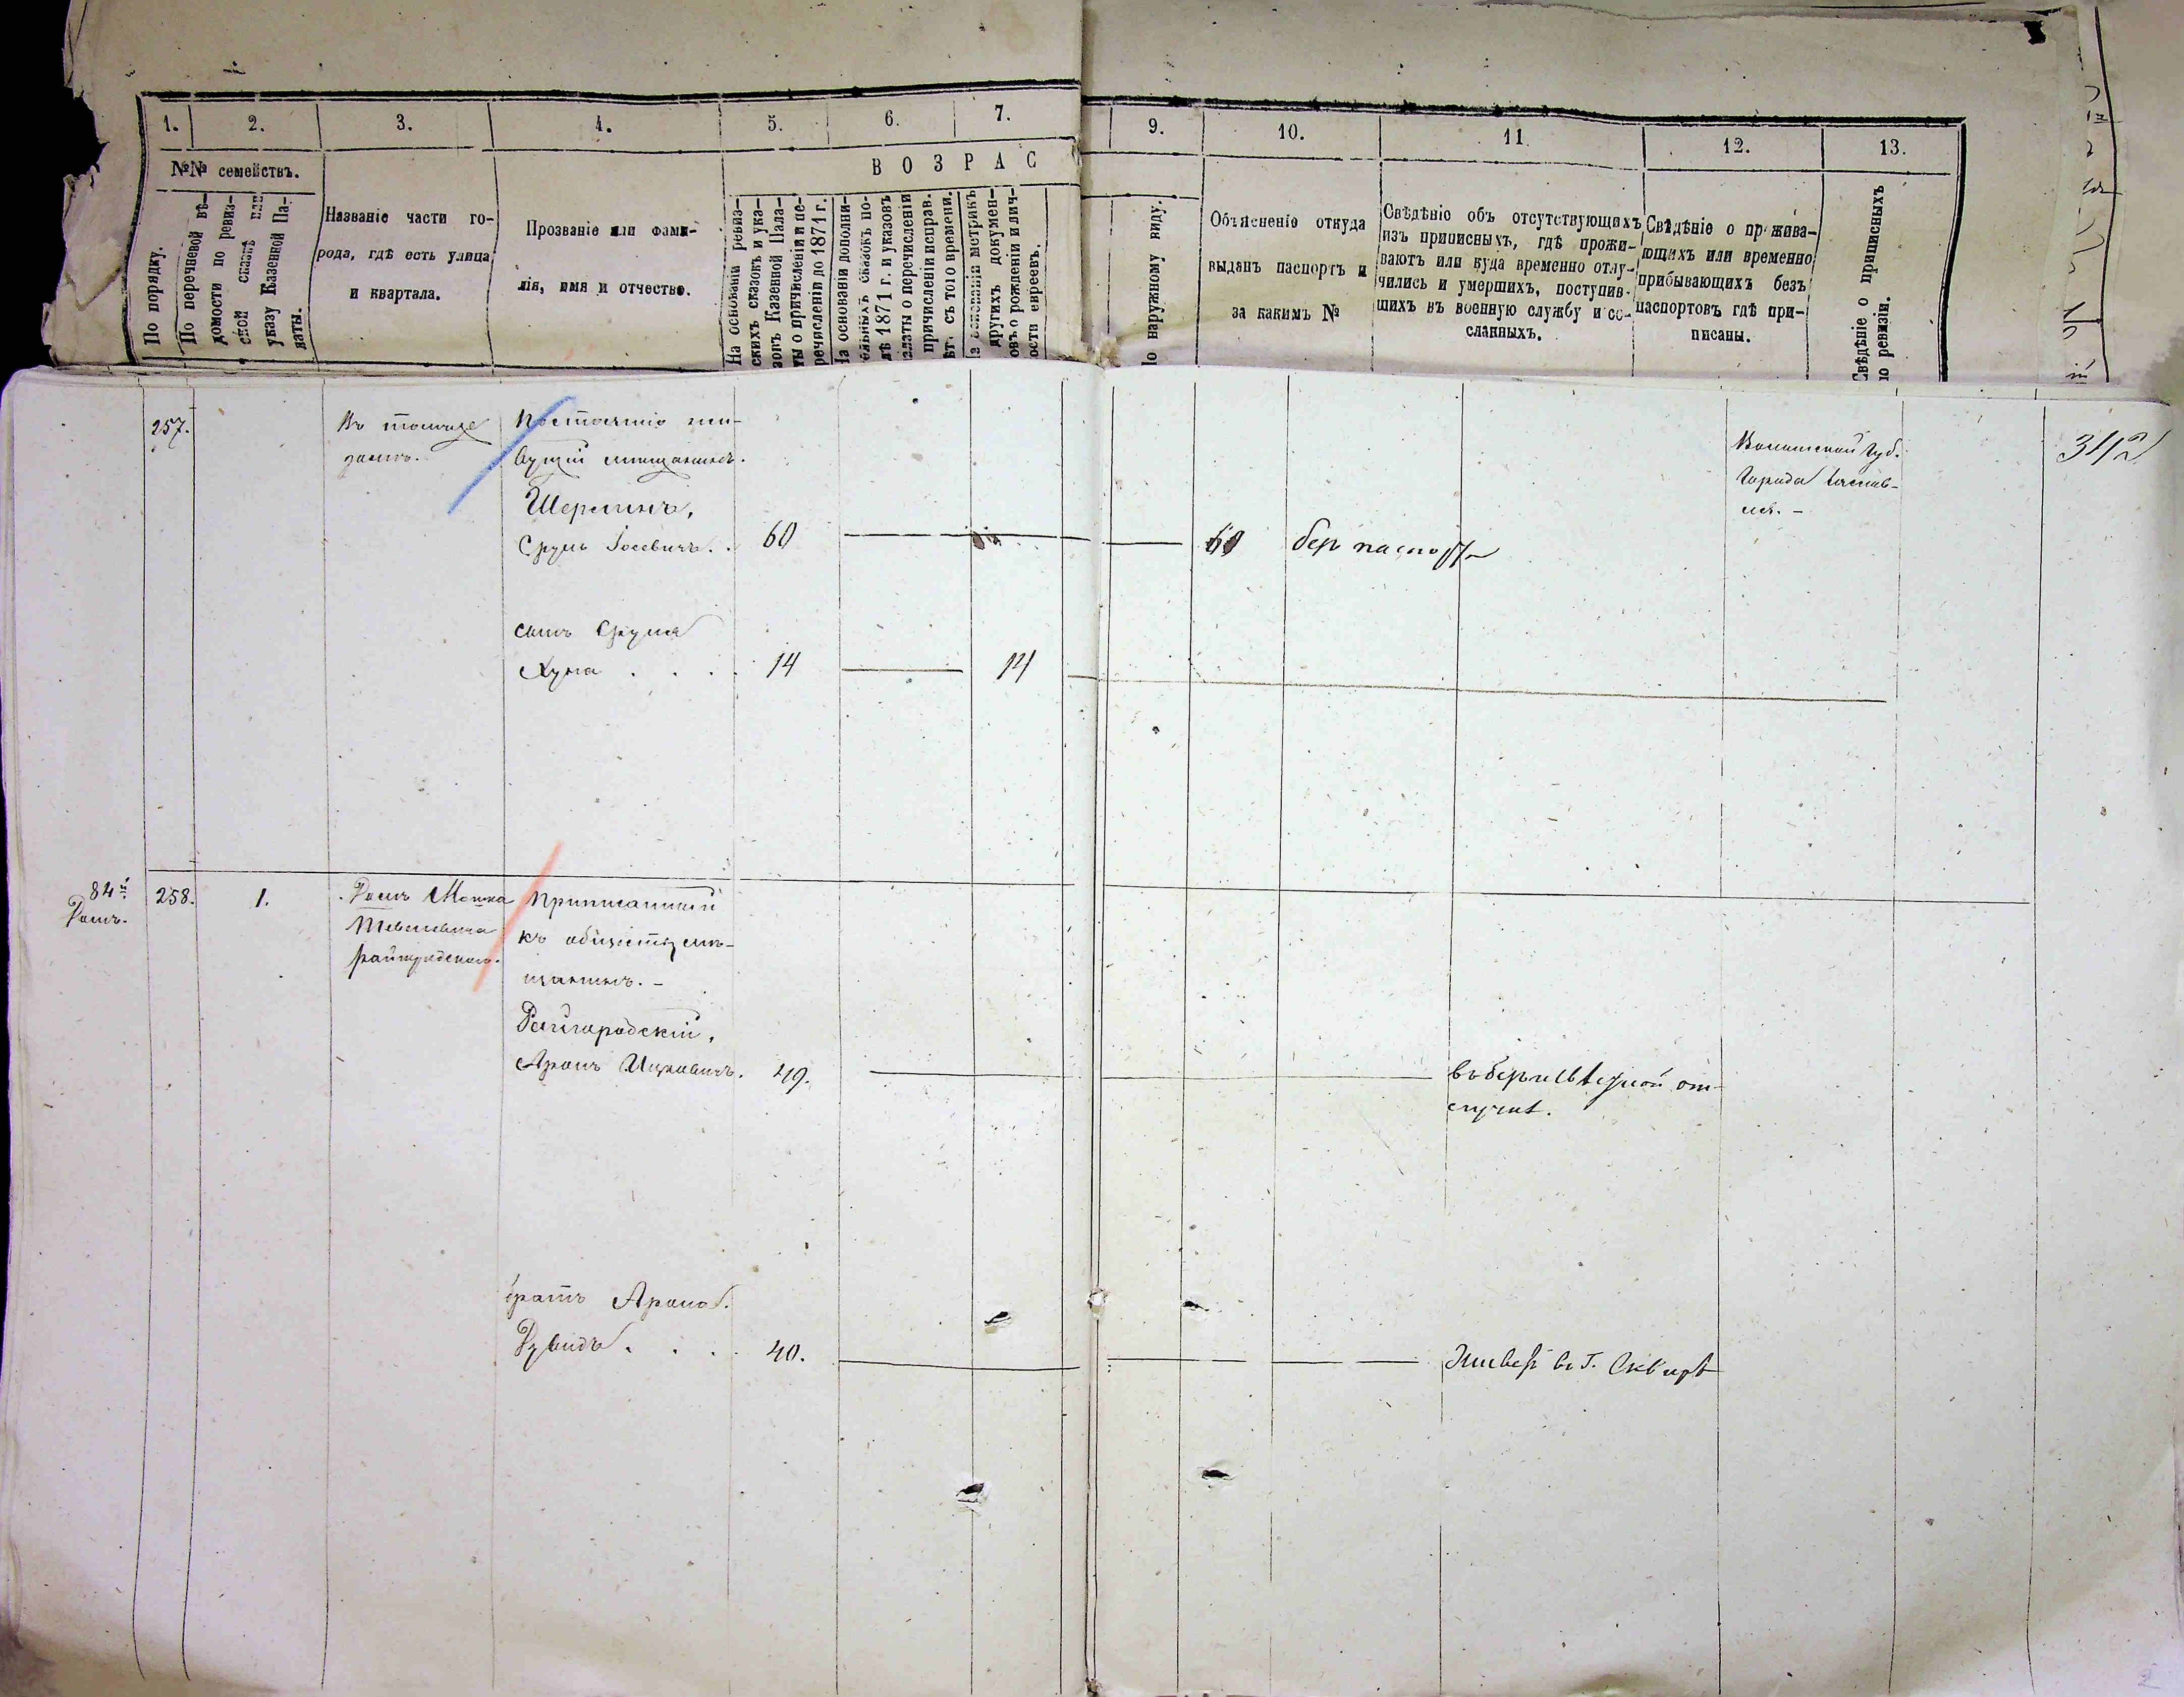 1. 2. 3. 4. 5. 6. 7. 9. 10. 11. 12. 13.
№№ семействъ.
По порядку.
По перечневой вѣ-
домости по ревиз-
ской сказкѣ или
указу Казенной Па-
латы.
Названіе части го-
рода, гдѣ есть улица
и квартала.
Прозваніе или фами-
лія, имя и отчество.
ВОЗРАС
На основаніи ревиз-
скихъ сказокъ и ука-
зовъ Казенной Пала-
ты о причисленіи и пе-
речисленіи до 1871 г.
На основаніи дополни-
ельныхъ сказокъ по-
лѣ 1871 г. и указовъ
алаты о перечисленіи
причисленіи исправ.
ѣт. съ того времени.
а основаніи метрикъ
другихъ докумен-
овъ о рожденіи и лич-
ости евреевъ.
По наружному виду.
Объясненіе откуда
выданъ паспортъ и
за какимъ №
Свѣдѣніе объ отсутствующихъ
изъ приписныхъ, гдѣ прожи-
ваютъ или куда временно отлу-
чились и умершихъ, поступив-
шихъ въ военную службу и со-
сланныхъ.
Свѣдѣніе о прожива-
ющихъ или временно
прибывающихъ безъ
паспортовъ гдѣ при-
писаны.
Свѣдѣніе о приписныхъ
по ревизіи.
257.
Въ томъ же
домѣ.
Постоянно жи-
вущій мѣщанинъ.
Шерманъ,
Сруль Іосевичъ.
60
60
безъ паспорта
Волынской Губ.
Города Заслав-
ля. -
312
сынъ Сруля
14
14
84й
Домъ.
258.
1.
Домъ Мошка
Райгородскаго.
Приписанный
къ обществу мѣ-
щанинъ. -
Райгородскій,
Аронъ Ицковичъ.
49.
въ безъизвѣстной от-
лучкѣ.
братъ Арона
Дувидъ
40.
Живетъ въ Г. Сквирѣ